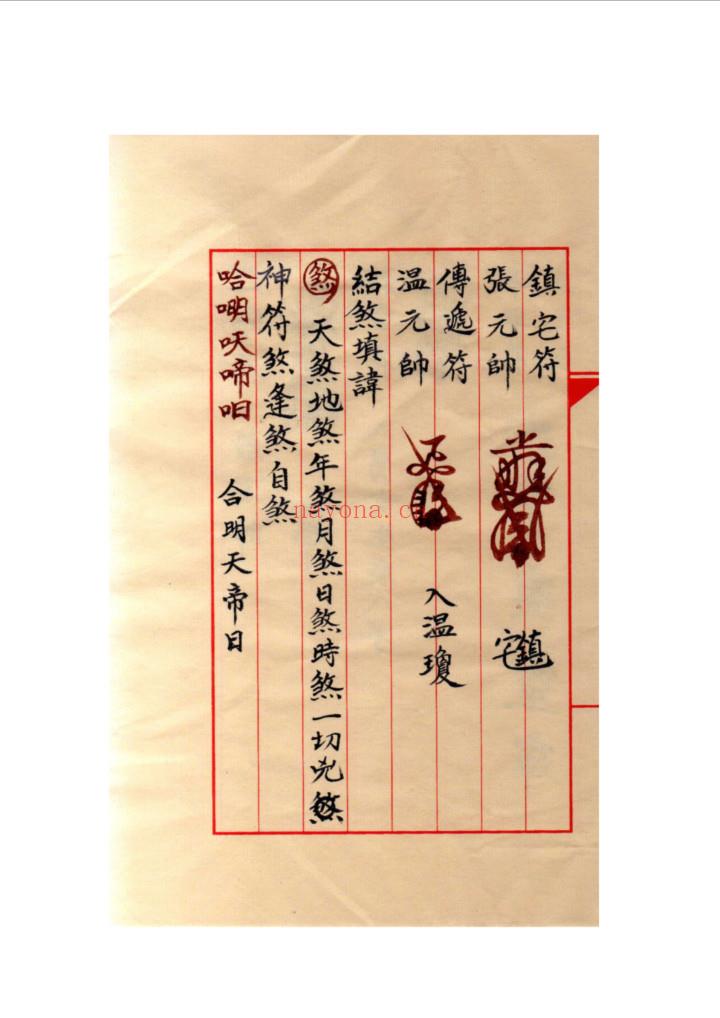 鎮宅符
張元帥
鎮宅
傳遞符
溫元帥
入溫瓊
結煞填諱
煞 天煞地煞年煞月煞日煞時煞一切兇煞
神符煞逢煞自煞
哈明呋啼呾 合明天帝日
nayona.c